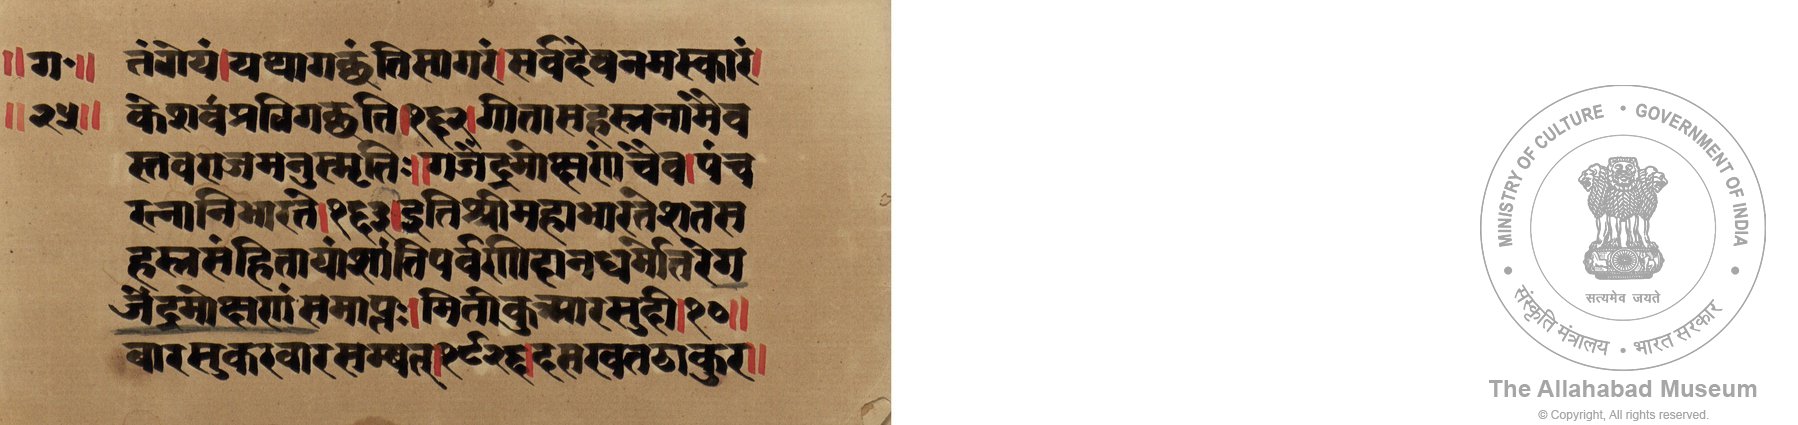 ॥ग॰॥ तंरोयं।यथागछंतिसागरं।सर्वदेवनमस्कारं।
॥२५॥ केशवंप्रतिगछति।१६२।गीतासहस्त्रनामैव
स्तवराजमनुस्मृतिः॥गजेंद्रमोक्षणंचैव।पंच
रत्नानिभारते।१६३।इतिश्रीमहाभारतेशतस
हस्त्रसंहितायांशांतिपर्वणीदानधर्मोत्तरेग
जेंद्रमोक्षणंसमाप्तः।मितीकुआरसुदी।१०॥
वारसुकरवारसम्वत।१९२६।दसखतठाकुर॥
MINISTRY OF CULTURE • GOVERNMENT OF INDIA
सत्यमेव जयते
संस्कृति मंत्रालय • भारत सरकार
The Allahabad Museum
© Copyright, All rights reserved.